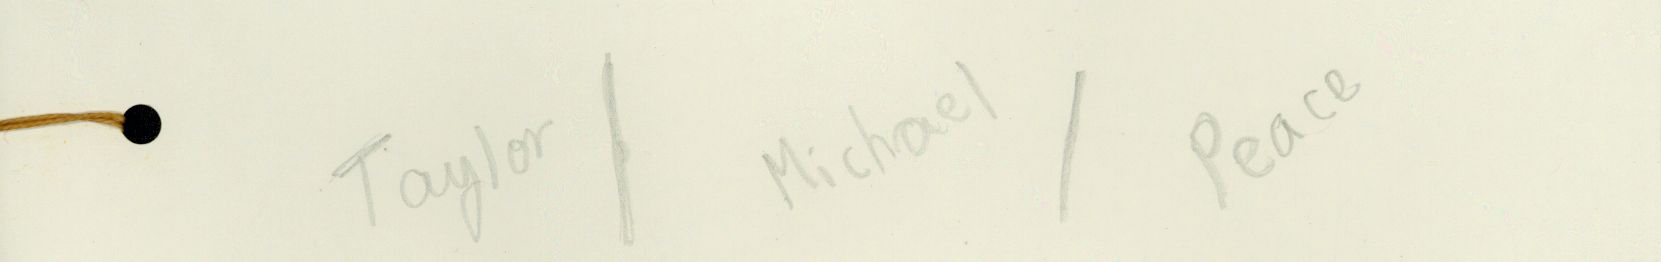 Taylor / Michael / Peace